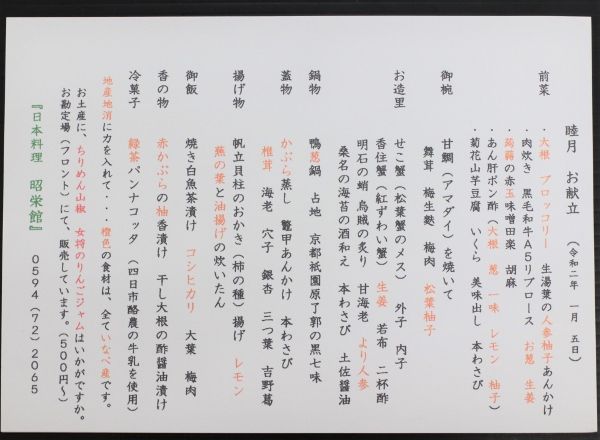 睦月 お献立 (令和二年 一月 五日)
前菜
・大根 ブロッコリー 生湯葉の人参柚子あんかけ
・肉炊き 黒毛和牛A5リブロース お葱 生姜
・蒟蒻の赤玉味噌田楽 胡麻
・あん肝ポン酢(大根 葱 一味 レモン 柚子)
・菊花山芋豆腐 いくら 美味出し 本わさび
御椀
甘鯛(アマダイ)を焼いて
舞茸 梅生麩 梅肉 松葉柚子
お造里
せこ蟹(松葉蟹のメス) 外子 内子
香住蟹(紅ずわい蟹) 生姜 若布 二杯酢
明石の蛸 烏賊の炙り 甘海老 より人参
桑名の海苔の酒和え 本わさび 土佐醤油
鍋物
鴨葱鍋 占地 京都祇園原了郭の黒七味
蓋物
かぶら蒸し 鼈甲あんかけ 本わさび
椎茸 海老 穴子 銀杏 三つ葉 吉野葛
揚げ物
帆立貝柱のおかき(柿の種)揚げ レモン
蕪の葉と油揚げの炊いたん
御飯
焼き白魚茶漬け コシヒカリ 大葉 梅肉
香の物
赤かぶらの柚香漬け 干し大根の酢醤油漬け
冷菓子
緑茶パンナコッタ (四日市酪農の牛乳を使用)
地産地消に力を入れて・・・橙色の食材は、全ていなべ産です。
お土産に、ちりめん山椒 女将のりんごジャムはいかがですか。
お勘定場(フロント)にて、販売しています。(500円~)
『日本料理 昭栄館』 0594(72)2065